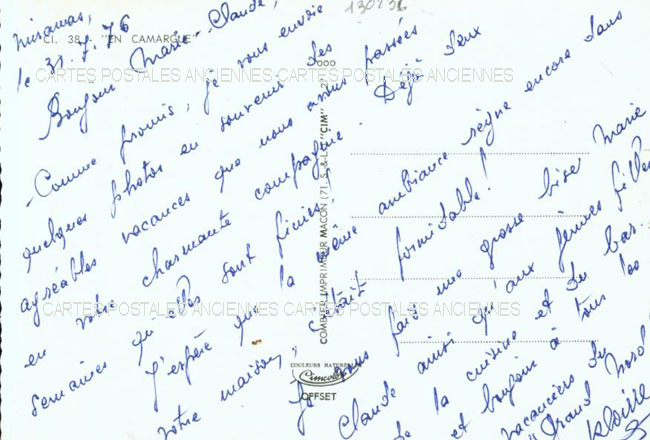 Miramas,
le 31.7.76
Bonjour Marie-Claude,
Comme promis, je vous envoie
quelques photos en souvenir des
agréables vacances que nous avons passées
en votre charmante compagnie. Déjà deux
semaines qu'elles sont finies,
J'espère que la même ambiance règne encore dans
votre maison, c'était formidable!
Je vous fais une grosse bise, Marie
Claude ainsi qu'aux jeunes filles
de la cuisine et du bar.
et bonjour à tous les
vacanciers du
"Grand Nord
CI. 38 - "EN CAMARGUE"
130236
CARTES POSTALES ANCIENNES CARTES POSTALES ANCIENNES
COMBIER IMPRIMEUR MACON (71 S.-&-L.) "CIM"
CARTES POSTALES ANCIENNES CARTES POSTALES ANCIENNES
COULEURS NATURELLES
Cimcolor
OFFSET